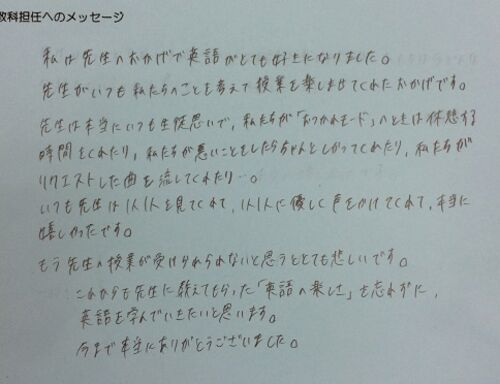 教科担任へのメッセージ
私は先生のおかげで英語がとても好きになりました。
先生がいつも私たちのことを考えて授業を楽しませてくれたおかげです。
先生は本当にいつも生徒思いで、私たちが「おつかれモード」のときは休憩する
時間をくれたり、私たちが悪いことをしたらちゃんとしかってくれたり、私たちが
リクエストした曲を流してくれたり…。
いつも先生は1人1人を見てくれて、1人1人に優しく声をかけてくれて、本当に
嬉しかったです。
もう先生の授業が受けられないと思うととても悲しいです。
これからも先生に教えてもらった「英語の楽しさ」を忘れずに、
英語を学んでいきたいと思います。
今まで本当にありがとうございました。